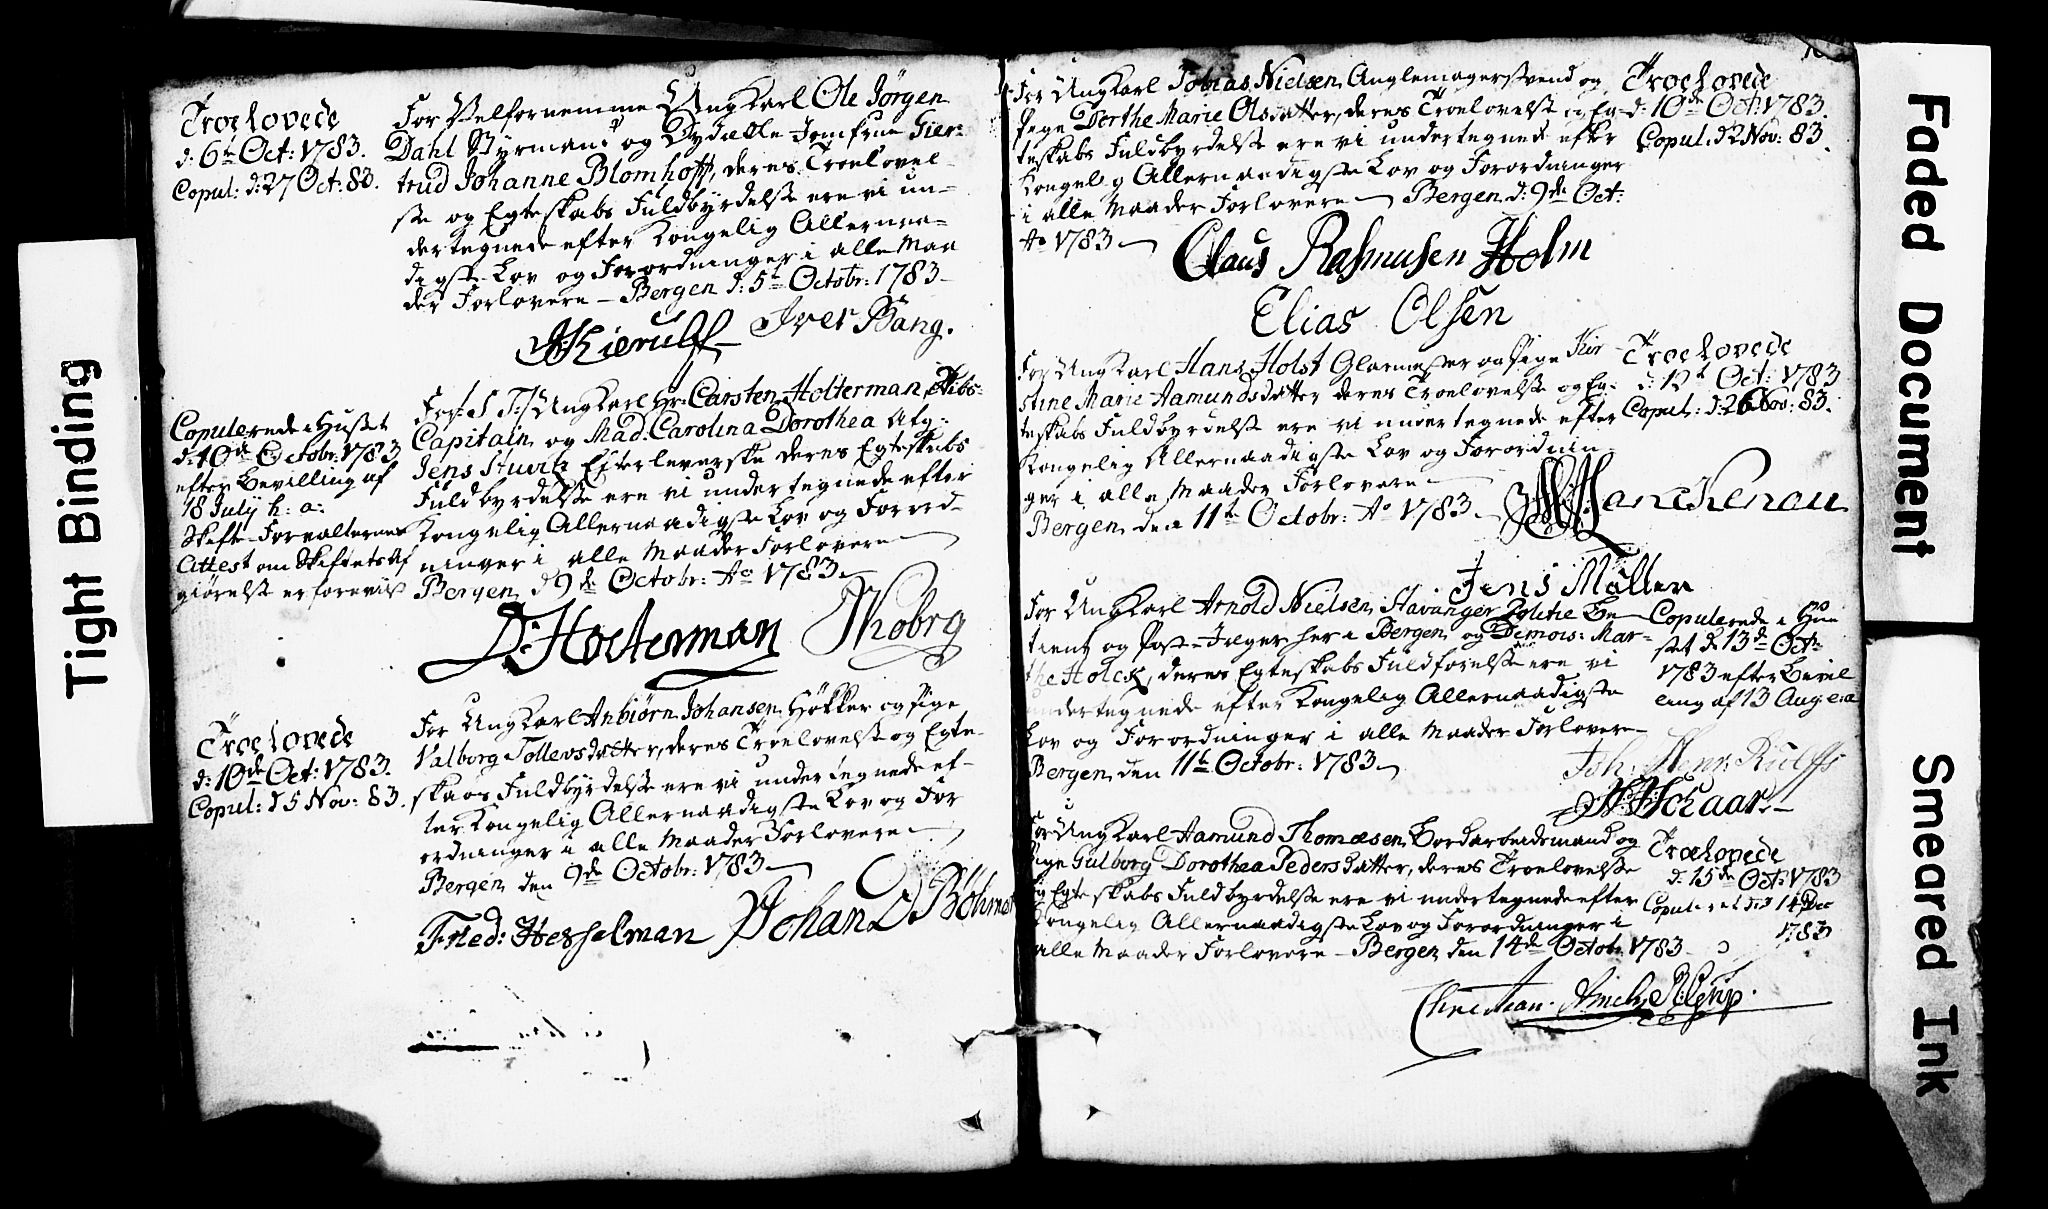 Tight Binding
Troelovede
d: 6te Oct: 1783.
Copul: d: 27 Oct: 83.
For Velfornemme Ungkarl Ole Jörgen
Dahl Styrmand og Dydædle Jomfrue Gier-
trud Johanne Blomhoff, deres Troelovel-
se og Egteskabs Fuldbyrdelse ere vi un-
dertegnede efter Kongelig Allernaa-
digste Lov og Forordninger i alle Maa
der Forlovere - Bergen d: 5te Octobr: 1783-
Kierulf Iver Bang.
Copulerede i Huset
d: 10de Octobr: 1783
efter Bevilling af
18 July h: a:
Skifte-Forvalternes
Attest om Skiftets Af
giörelse er foreviist
For /: S. T: / Ungkarl Hr. Carsten Holterman, Skibs-
Capitain og Mad. Carolina Dorothea Afg:
Jens Efterleverske deres Egteskabs
Fuldbyrdelse ere vi undertegnede efter
Kongelig Allernaadigste Lov og Forord-
ninger i alle Maader Forlovere
Bergen d 9de Octobr: Ao 1783
D: Holterman
Troelovede
d: 10de Oct: 1783.
Copul: d 5 Nov: 83.
For Ungkarl Anbiörn Johansen Høkker og Pige
Valborg Tollevsdatter, deres Troelovelse og Egte-
skabs Fuldbyrdelse ere vi undertegnede ef-
ter Kongelig Allernaadigste Lov og For
ordninger i alle Maader Forlovere
Bergen den 9de Octobr: 1783
Fred: Hesselman Johan D Böhmer
For Ungkarl Tobias Nielsen Anglemagersvend og
Pige Dorthe Marie Olsdatter, deres Troelovelse og Eg-
teskabs Fuldbyrdelse ere vi undertegnede efter
Kongelig Allernaadigste Lov og Forordninger
i alle Maader Forlovere Bergen d: 9de Oct:
Ao 1783
Troelovede
d: 10de Oct: 1783.
Copul: d 2 Nov: 83.
Claus Rasmusen Holm
Elias Olsen
For Ungkarl Hans Holst Glarmester og Pige Kir-
stine Marie Aamundsdatter deres Troelovelse og Eg-
teskabs Fuldbyrdelse ere vi undertegnede efter
Kongelig Allernaadigste Lov og Forordnin-
ger i alle Maader Forlovere
Bergen den 11te Octobr: Ao 1783
Troelovede
d: 12t Oct: 1783
Copul: d: 26 Nov: 83.
Jens Möller
For Ungkarl Arnold Nielsen Stavanger Politie Be-
tient og Post-Jæger her i Bergen og Demois: Mar-
the Holck, deres Egteskabs Fuldförelse ere vi
undertegnede efter Kongelig Allernaadigste
Lov og Forordninger i alle Maader Forlovere
Bergen den 11te Octobr: 1783
Copulerede i Huu
set d 13d Oct:
1783 efter Bevil
ling af 13 Aug: e: a
Joh: Henr: Rülffs
For Ungkarl Aamund Thomæsen Bordarbeidsmand og
Pige Gulborg Dorothea Pedersdatter, deres Troelovelse
og Egteskabs Fuldbyrdelse ere vi undertegnede efter
Kongelig Allernaadigste Lov og Forordninger i
alle Maader Forlovere - Bergen den 14de Octobr: 1783
Troelovede
d: 15de Oct: 1783
14 Dec
1783
Christian
Faded Document
Smeared Ink